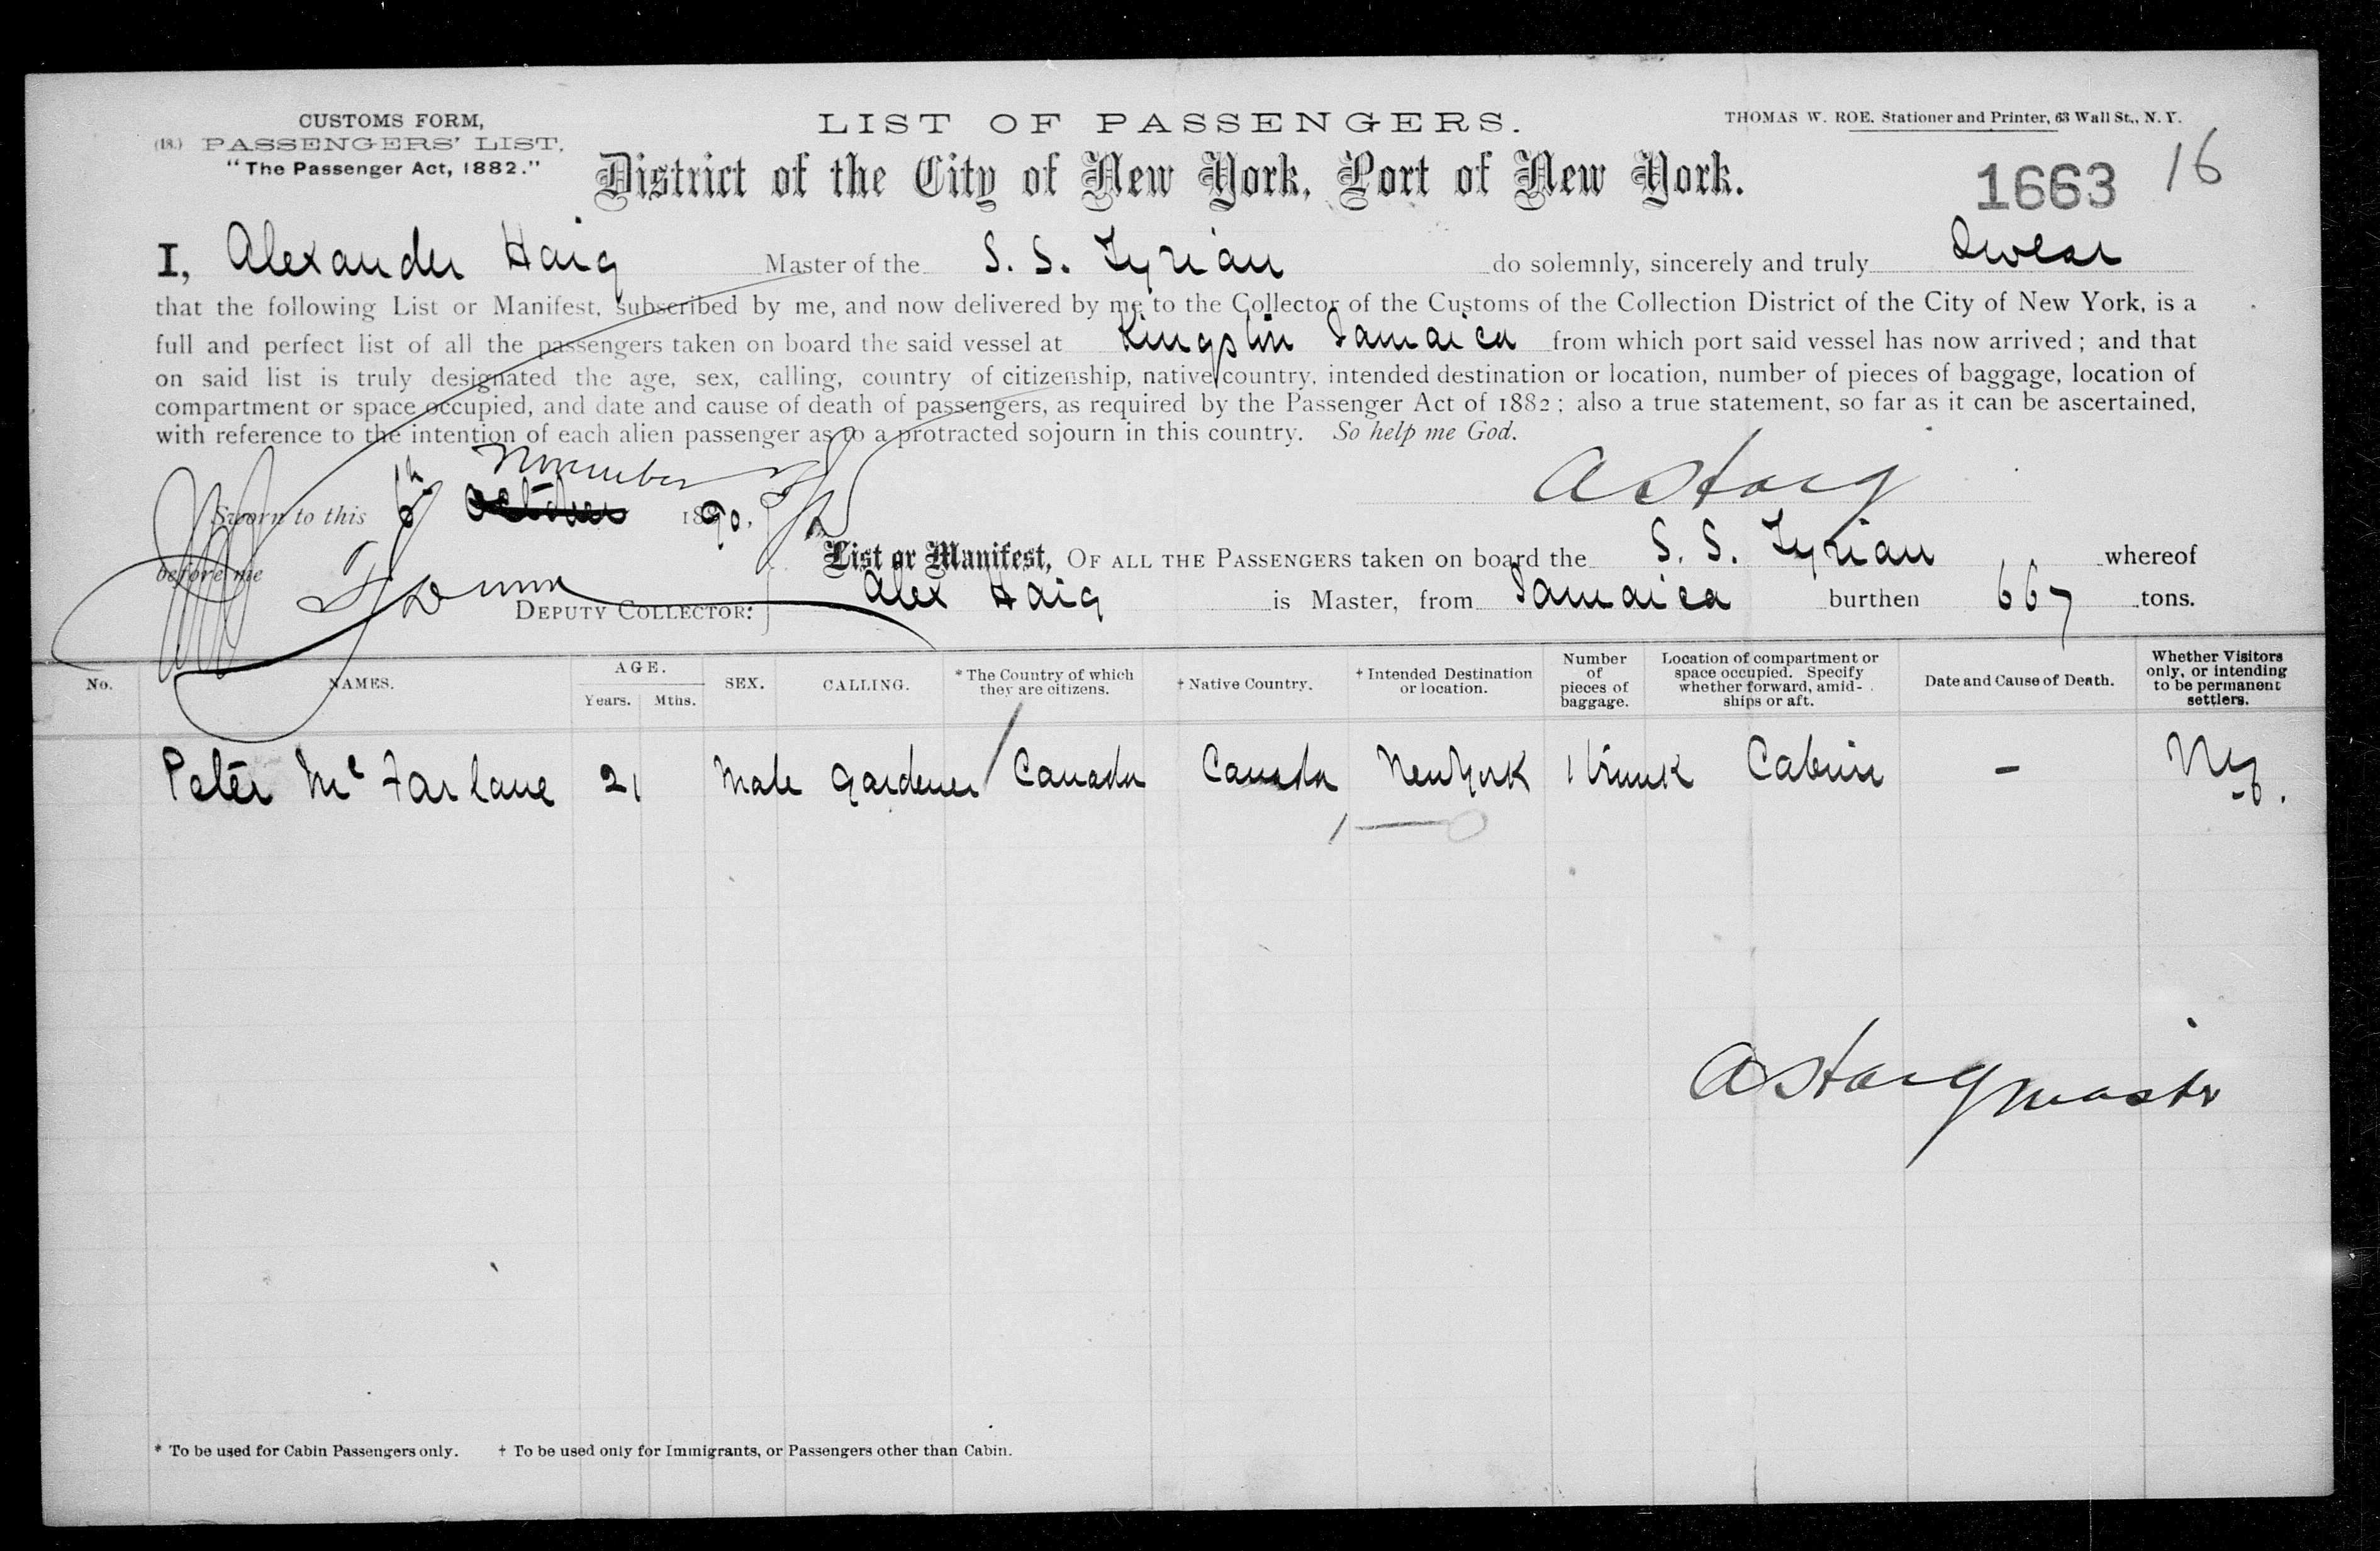 CUSTOMS FORM,
(18.) PASSENGERS' LIST,
"The Passenger Act, 1882."
LIST OF PASSENGERS.
THOMAS W. ROE. Stationer and Printer, 63 Wall St., N. Y.
District of the City of New York, Port of New York.
1663 16
I, Alexander Haig Master of the S. S. Tyrian do solemnly, sincerely and truly Swear
that the following List or Manifest, subscribed by me, and now delivered by me to the Collector of the Customs of the Collection District of the City of New York, is a
full and perfect list of all the passengers taken on board the said vessel at Kingston Jamaica from which port said vessel has now arrived; and that
on said list is truly designated the age, sex, calling, country of citizenship, native country, intended destination or location, number of pieces of baggage, location of
compartment or space occupied, and date and cause of death of passengers, as required by the Passenger Act of 1882; also a true statement, so far as it can be ascertained,
with reference to the intention of each alien passenger as to a protracted sojourn in this country. So help me God.
November
A Haig
Sworn to this 6th October 1890,
before me
DEPUTY COLLECTOR:
List or Manifest, OF ALL THE PASSENGERS taken on board the S. S. Tyrian whereof
Alex Haig is Master, from Jamaica burthen 667 tons.
No. NAMES. AGE. Years. Mths. SEX. CALLING. * The Country of which they are citizens. † Native Country. † Intended Destination or location. Number of pieces of baggage. Location of compartment or space occupied. Specify whether forward, amidships or aft. Date and Cause of Death. Whether Visitors only, or intending to be permanent settlers.
Peter McFarlane 21 Male Gardener Canada Canada New York 1 trunk Cabin –
1 — 0
A Haig master
* To be used for Cabin Passengers only. † To be used only for Immigrants, or Passengers other than Cabin.